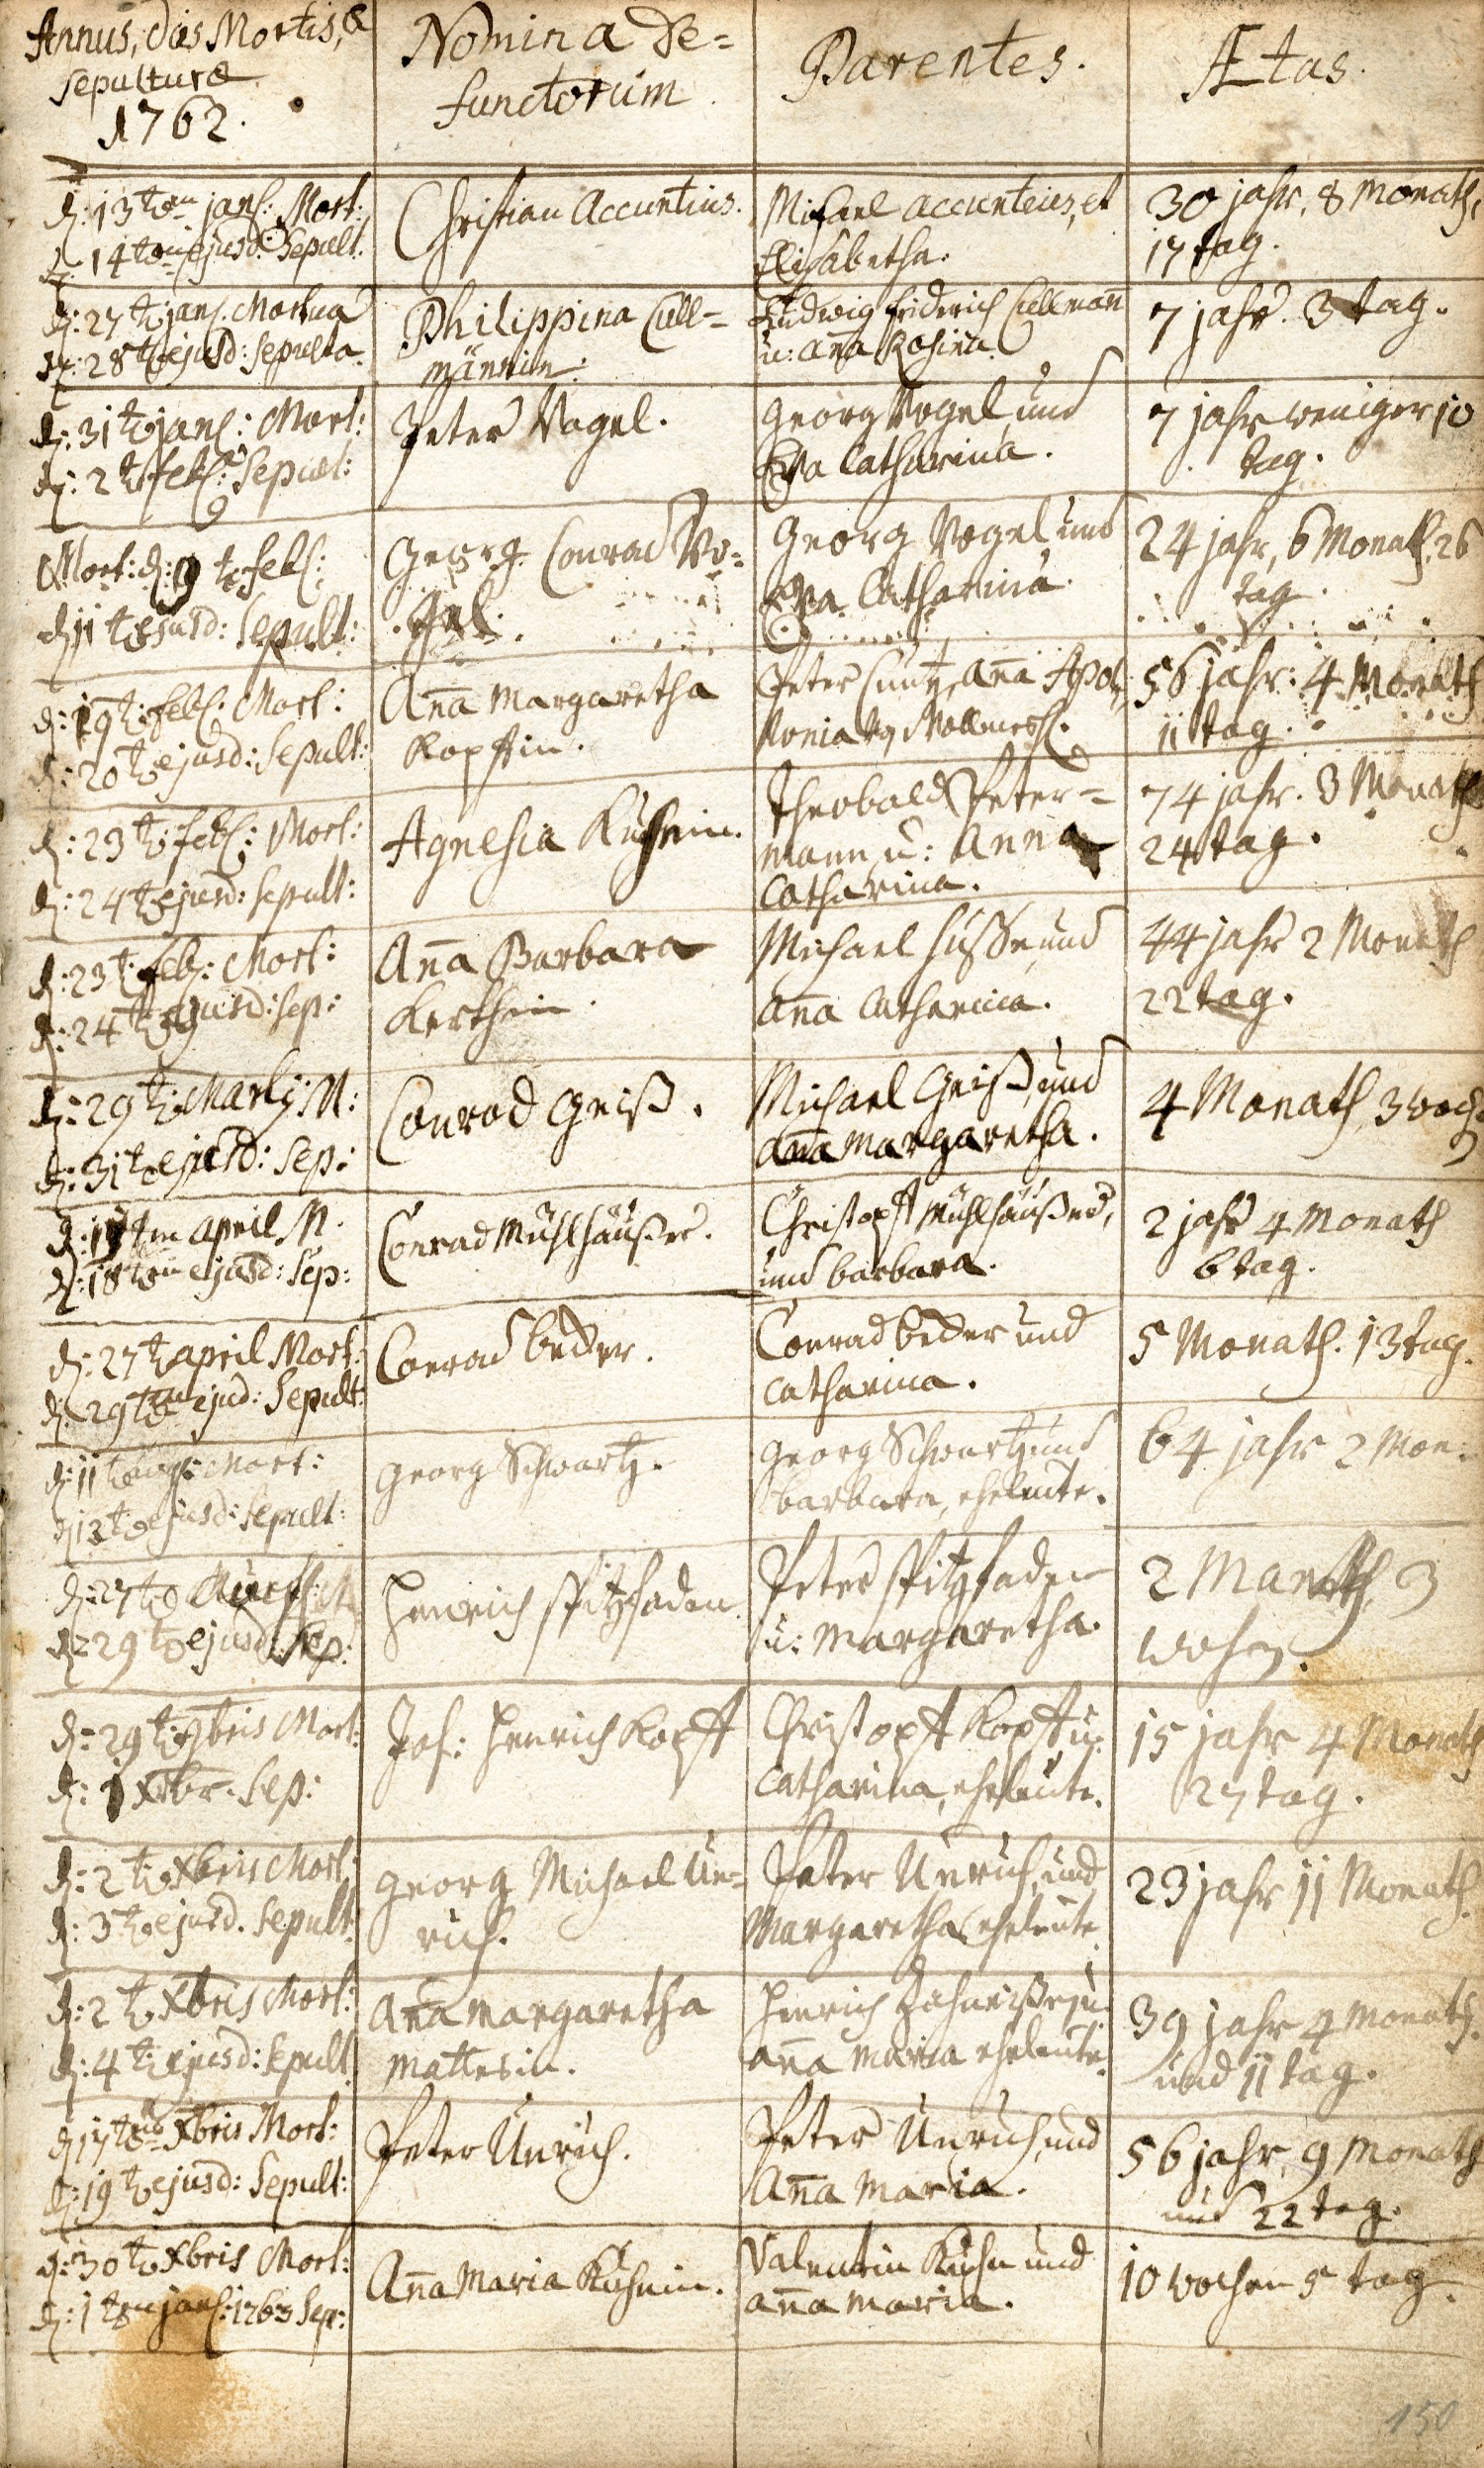 Annus, dies Mortis, &
sepulturæ
1762.
Nomina De=
functorum.
Parentes.
Ætas.
d: 13ten jan: Mort:
d: 14ten ejusd: Sepult:
Christian Accuntius.
Michael Accunteus, et
Elisabetha.
30 jahr, 8 Monath,
17 tag.
d: 27t jan: Mortua
d: 28t ejusd: sepulta.
Philippina Cull=
männin:
Ludwig friderich Cullmann
u: Aña Rosina.
7 jahr. 3 tag.
d: 31t jan: Mort:
d: 2t feb: Sepult:
Peter Vogel.
Georg Vogel und
Eva Catharina.
7 jahr weniger 10
tag.
Mort: d: 9t feb:
d 11t ejusd: Sepult:
Georg Conrad Vo=
gel.
Georg Vogel und
Eva Catharina.
24 jahr, 6 Monath, 26
tag.
d: 19t feb: Mort:
d: 20t ejusd: Sepult:
Aña Margaretha
Kopffin.
Peter Cuntz, Aña Apol=
lonia
56 jahr: 4 Monath
11 tag.
d: 23t feb: Mort:
d: 24t ejusd: sepult:
Agnesia Kuhnin.
Theobald Peter=
mann u: Anna
Catharina.
74 jahr. 3 Monath
24 tag.
d: 23t feb: Mort:
d: 24t ejusd: sep:
Aña Barbara
Kerthin.
Michael Husse und
Aña Catharina.
44 jahr 2 Monath
22 tag.
d: 29t Martij M:
d: 31t ejusd: Sep:
Conrad Geiß.
Michael Geiß, und
Aña Margaretha.
4 Monath, 3 woch
d: 17ten April M.
d: 18ten ejusd: Sep:
Conrad Mühlhäußer.
Christoph Mühlhäußer,
und barbara.
2 jahr 4 Monath
6 tag.
d: 27t april Mort:
d: 29ten ejud: Sepult:
Conrad becker.
Conrad becker und
Catharina.
5 Monath. 13 tag.
d: 11t Mort:
d 12t ejusd: Sepult:
Georg Schwartz.
Georg Schwartz und
barbara, eheleute.
64 jahr 2 Mon:
d: 27t
d: 29t ejusd: Sep:
Henrich Spitzfaden.
Peter Spitzfaden
u: Margaretha.
2 Monath, 3
wochen.
d: 29t 9bris Mort:
d: 1 Xbr. Sep:
Joh: Henrich Kopff
Christoph Kopff u:
Catharina, eheleute.
15 jahr 4 Monath
27 tag.
d: 2t Xbris Mort:
d: 3t ejusd. Sepult
Georg Michael Un=
rich.
Peter Unrich, und
Margaretha eheleute.
23 jahr 11 Monath.
d: 2t Xbris Mort:
d: 4t ejusd: sepult
Aña Margaretha
Mattesin.
Henrich u:
Aña Maria eheleute.
39 jahr 4 Monath,
und 11 tag.
d 17ten Xbris Mort:
d: 19t ejusd: Sepult:
Peter Unrich.
Peter Unrich, und
Aña Maria.
56 jahr, 9 Monath
und 22 tag.
d: 30t Xbris Mort:
d: 1ten jan: 1763 Sep:
Aña Maria Kuhnin.
Valentin Kuhn und
Aña Maria.
10 wochen 5 tag.
150